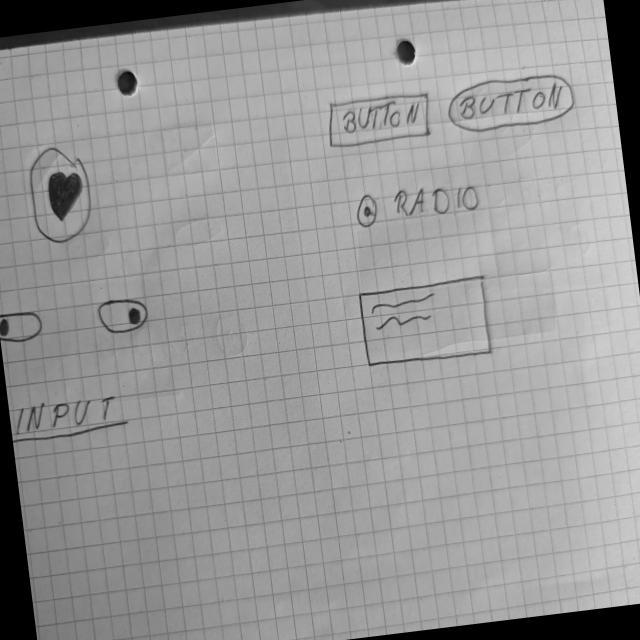 BUTTON BUTTON
RADIO
INPUT